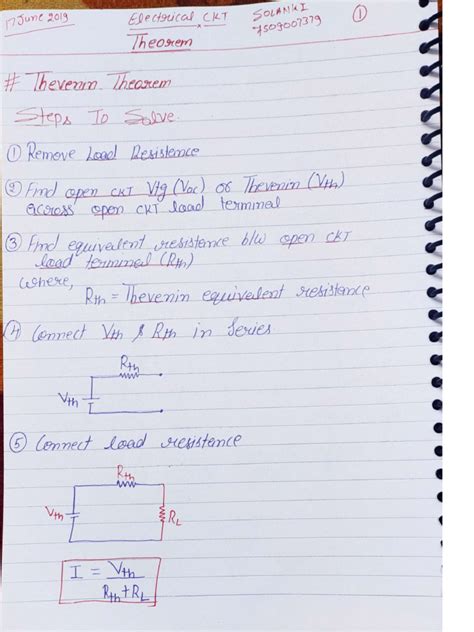 17 June 2019
Electrical CKT
SOLANKI
7509007379
①
Theorem
# Thevenin Theorem
Steps To Solve
① Remove Load Resistence
② Find open CKT Vtg (Voc) or Thevenin (Vth)
across open CKT load terminal
③ Find equivalent resistence b/w open CKT
load terminal (Rth)
where,
Rth = Thevenin equivalent resistance
④ Connect Vth & Rth in Series
Rth
Vth
⑤ Connect load resistence
Rth
Vth
RL
I = Vth
Rth + RL